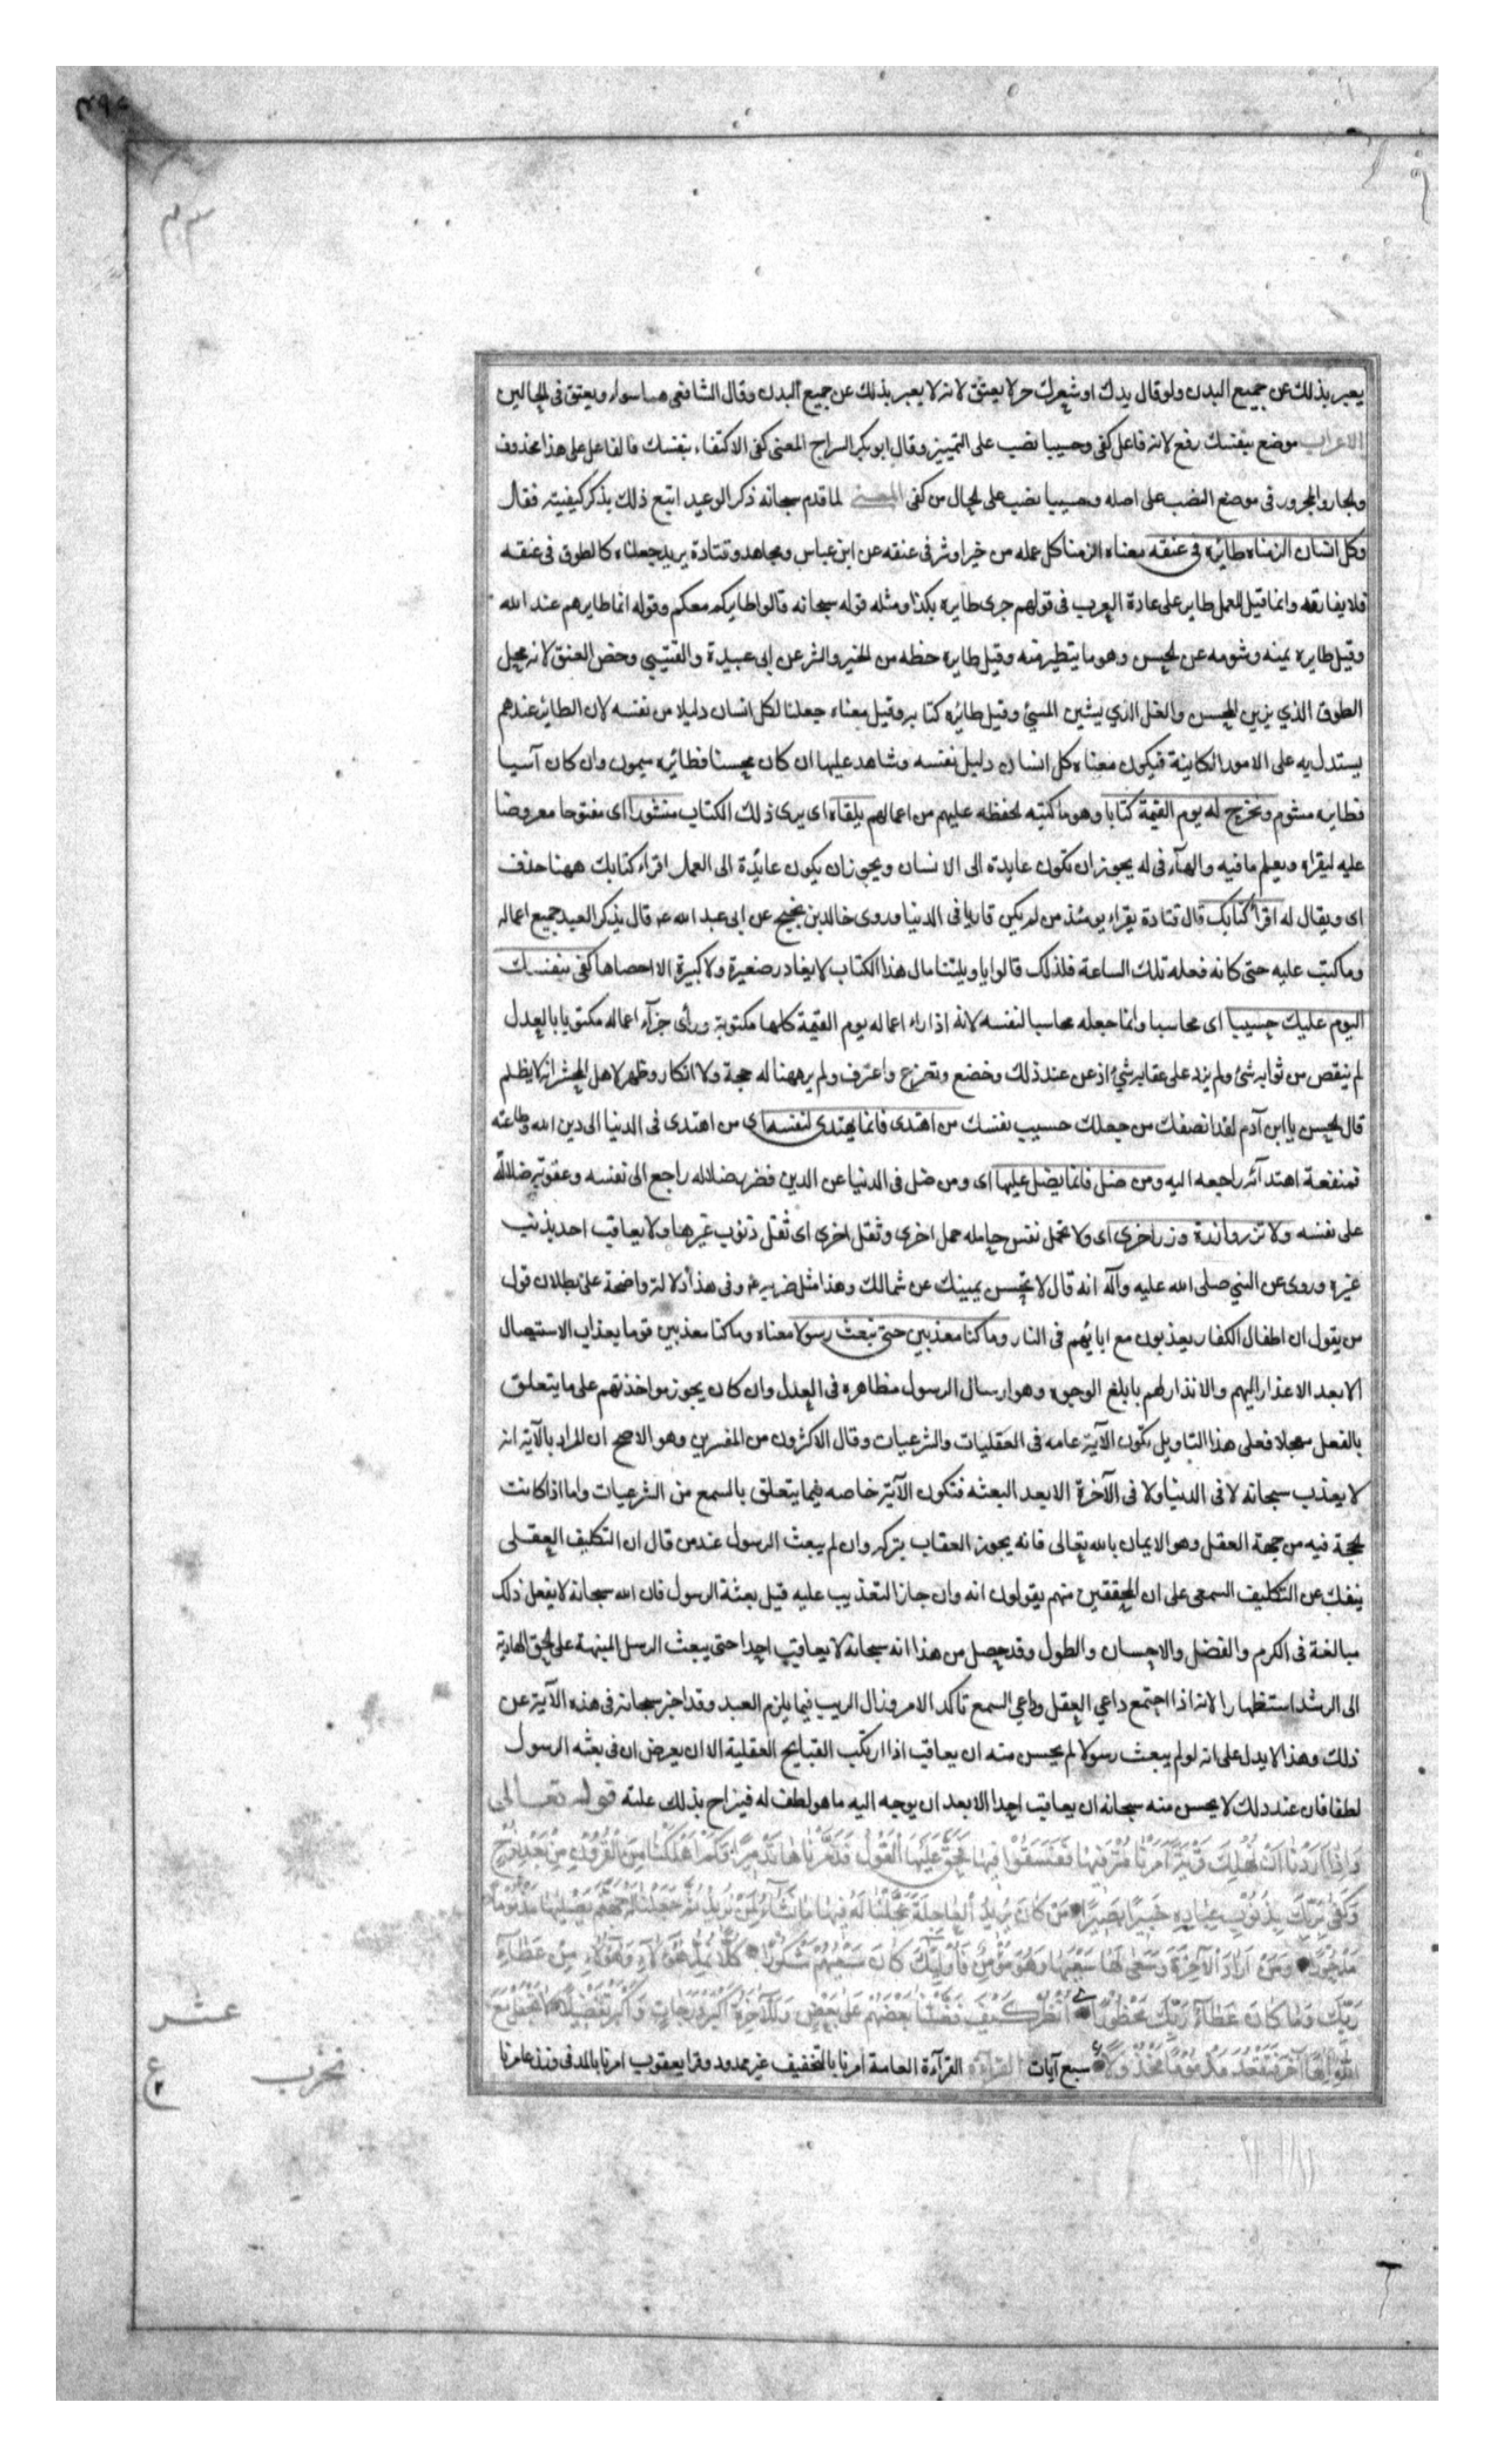 يعبر بذلك عن جميع البدن ولو قال يدك او شعرك حر لا يعتق لانه لا يعبر بذلك عن جميع البدن وقال الشافعى هما سواء ويعتق فى الحالين
الاعراب موضع بنفسك رفع لانه فاعل كفى وحسيبا نصب على التمييز وقال ابو بكر السراج المعنى كفى الاكتفاء بنفسك فالفاعل على هذا محذوف
والجار والمجرور فى موضع النصب على اصله وحسيبا نصب على الحال من كفى المعنى لما قدم سبحانه ذكر الوعيد اتبع ذلك بذكر كيفيته فقال
وكل انسان الزمناه طائره فى عنقه معناه الزمنا كل عمله من خير او شر فى عنقه عن ابن عباس ومجاهد وقتادة يريد جعلناه كالطوق فى عنقه
فلا يفارقه وانما قيل للعمل طاير على عادة العرب فى قولهم جرى طايره بكذا ومثله قوله سبحانه قالوا طايركم معكم وقوله انما طايرهم عند الله
وقيل طايره يمنه وشومه عن الحسن وهو ما يتطير منه وقيل طايره حظه من الخير والشر عن ابى عبيدة والقتيبي وخص العنق لانه محل
الطوق الذي يزين المحسن والغل الذي يشين المسئ وقيل طائره كتابه وقيل معناه جعلنا لكل انسان دليلا من نفسه لان الطائر عندهم
يستدل به على الامور الكاينة فيكون معناه كل انسان دليل نفسه وشاهد عليها ان كان محسنا فطائره ميمون وان كان آسيا
فطايره مشوم ونخرج له يوم القيمة كتابا وهو ما كتبه الحفظه عليهم من اعمالهم يلقاه اى يرى ذلك الكتاب منشورا اى مفتوحا معروضا
عليه ليقراه ويعلم ما فيه والهآء فى له يجوز ان تكون عايدة الى الانسان ويجوز ان يكون عايدة الى العمل اقراء كتابك ههنا حذف
اى ويقال له اقرأ كتابك قال قتادة يقراء يومئذ من لم يكن قاريا فى الدنيا وروى خالد بن نجيح عن ابى عبد الله ع قال يذكر العبد جميع اعماله
وما كتب عليه حتى كانه فعله تلك الساعة فلذلك قالوا يا ويلتنا مال هذا الكتاب لا يغادر صغيرة ولا كبيرة الا احصاها كفى بنفسك
اليوم عليك حسيبا اى محاسبا وانما جعله محاسبا لنفسه لانه اذا راء اعماله يوم القيمة كلها مكتوبة وراى جزآء اعماله مكتوبا بالعدل
لم ينقص من ثوابه شئ ولم يزد على عقابه شئ اذعن عند ذلك وخضع وتضرع واعترف ولم يرههنا له حجة ولا انكار وظهر لاهل المحشر انه لا يظلم
قال الحسن يا ابن آدم لقد انصفك من جعلك حسيب نفسك من اهتدى فانما يهتدى لنفسه اى من اهتدى فى الدنيا الى دين الله وطاعته
فمنفعة اهتدآئه راجعه اليه ومن ضل فانما يضل عليها اى ومن ضل فى الدنيا عن الدين فضرر ضلاله راجع الى نفسه وعقوبة ضلاله
على نفسه ولا تزر وازرة وزر اخرى اى ولا تحمل نفس حامله حمل اخرى وثقل اخرى اى ثقل ذنوب غيرها ولا يعاقب احد بذنب
غيره وروى عن النبي صلى الله عليه وآله انه قال لا تجن يمينك عن شمالك وهذا مثل ضربه ع وفى هذا دلالة واضحة على بطلان قول
من يقول ان اطفال الكفار يعذبون مع ابائهم فى النار وما كنا معذبين حتى نبعث رسولا معناه وما كنا معذبين قوما بعذاب الاستيصال
الا بعد الاعذار اليهم والانذار لهم بابلغ الوجوه وهو ارسال الرسول مظاهره فى العدل وان كان يجوز مواخذتهم على ما يتعلق
بالفعل سجلا فعلى هذا التاويل تكون الآية عامه فى العقليات والشرعيات وقال الاكثرون من المفسرين وهو الاصح ان المراد بالآية انه
لا يعذب سبحانه لا فى الدنيا ولا فى الآخرة الا بعد البعثه فتكون الآية خاصه فيما يتعلق بالسمع من الشرعيات واما اذا كانت
لحجة فيه من جهة العقل وهو الايمان بالله تعالى فانه يجوز العقاب بتركه وان لم يبعث الرسول عند من قال ان التكليف العقلى
ينفك عن التكليف السمعى على ان المحققين منهم يقولون انه وان جاز التعذيب عليه قبل بعثة الرسول فان الله سبحانه لا يفعل ذلك
مبالغة فى الكرم والفضل والاحسان والطول وقد حصل من هذا انه سبحانه لا يعاقب احدا حتى يبعث الرسل المنبهة على الحق الهادية
الى الرشد استظهارا لانه اذا اجتمع داعي العقل وداعي السمع تاكد الامر وزال الريب فيما يلزم العبد وقد اخبر سبحانه فى هذه الآية عن
ذلك وهذا لا يدل على انه لو لم يبعث رسولا لم يحسن منه ان يعاقب اذا ارتكب القبايح العقلية الا ان يعرض ان فى بعثه الرسول
لطفا فان عند ذلك لا يحسن منه سبحانه ان يعاقب احدا الا بعد ان يوجه اليه ما هو لطف له فيزاح بذلك علته قوله تعالى
وَاِذَا اَرَدْنَا اَنْ نُهْلِكَ قَرْيَةً اَمَرْنَا مُتْرَفِيهَا فَفَسَقُوْا فِيهَا فَحَقَّ عَلَيْهَا الْقَوْلُ فَدَمَّرْنَاهَا تَدْمِيرًا وَكَمْ اَهْلَكْنَا مِنَ الْقُرُوْنِ مِنْ بَعْدِ نُوحٍ
وَكَفٰى بِرَبِّكَ بِذُنُوْبِ عِبَادِهِ خَبِيْرًا بَصِيْرًا مَنْ كَانَ يُرِيْدُ الْعَاجِلَةَ عَجَّلْنَا لَهُ فِيْهَا مَا نَشَآءُ لِمَنْ نُرِيْدُ ثُمَّ جَعَلْنَا لَهُ جَهَنَّمَ يَصْلٰيهَا مَذْمُوْمًا
مَدْحُوْرًا وَمَنْ اَرَادَ الْآخِرَةَ وَسَعٰى لَهَا سَعْيَهَا وَهُوَ مُؤْمِنٌ فَاُولٰئِكَ كَانَ سَعْيُهُمْ مَشْكُوْرًا كُلًّا نُمِدُّ هٰؤُلَآءِ وَهٰؤُلَآءِ مِنْ عَطَآءِ
رَبِّكَ وَمَا كَانَ عَطَآءُ رَبِّكَ مَحْظُوْرًا اُنْظُرْ كَيْفَ فَضَّلْنَا بَعْضَهُمْ عَلٰى بَعْضٍ وَلَلْآخِرَةُ اَكْبَرُ دَرَجَاتٍ وَاَكْبَرُ تَفْضِيْلًا لَا تَجْعَلْ مَعَ
اللّٰهِ اِلٰهًا آخَرَ فَتَقْعُدَ مَذْمُوْمًا مَخْذُوْلًا سبع آيات القرآءة القرآءة العامة امرنا بالتخفيف غير ممدود وقرا يعقوب امرنا بالمد فى وزن عامرنا
عشر
ع
٢